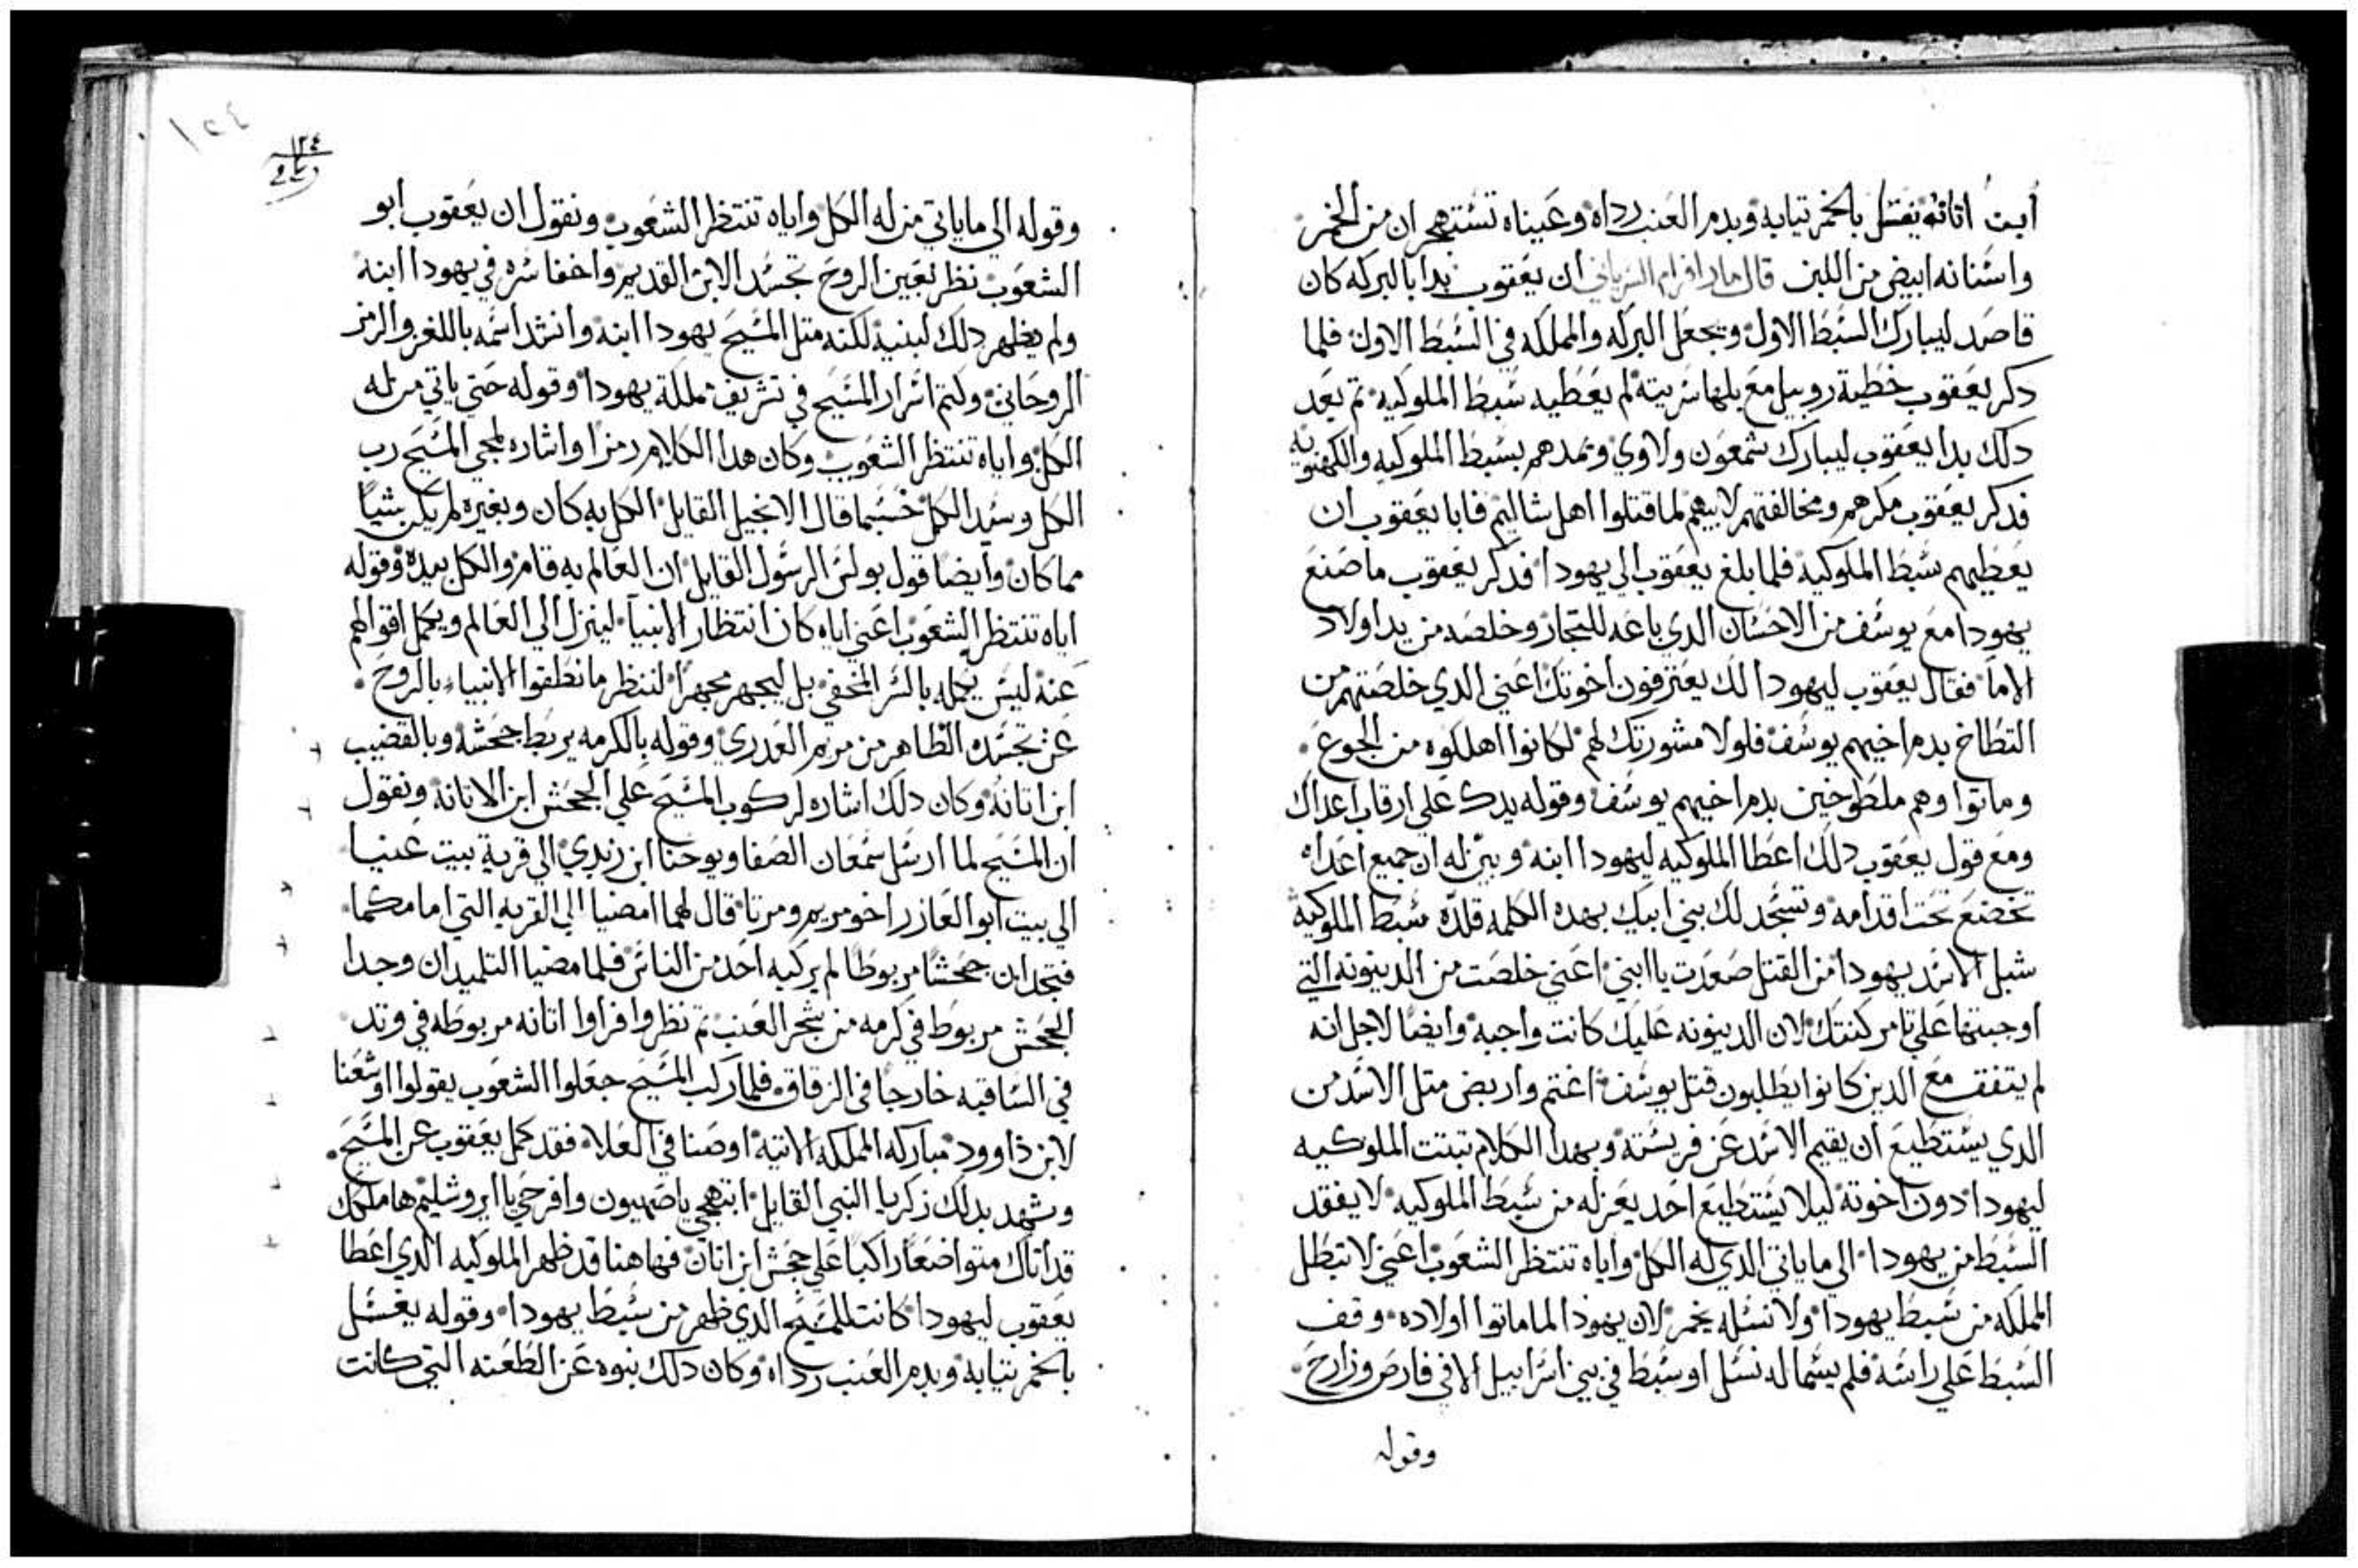 ابن اتانه يغتسل بالخمر تيابه وبدم العنب رداه وعيناه تستهجران من الخمر
واسنانه ابيض من اللبن قال مار افرام السرياني ان يعقوب بدا بالبركه كان
قاصد ليبارك السبط الاول ويجعل البركه والمملكه في السبط الاول فلما
دكر يعقوب خطية روبيل مع بلها سريته لم يعطيه سبط الملوكيه تم بعد
دلك بدا يعقوب ليبارك شمعون ولاوي ويمدهم بسبط الملوكيه والكهنوتيه
فدكر يعقوب مكرهم ومخالفتهم لابيهم لما قتلوا اهل شاليم فابا يعقوب ان
يعطيهم سبط الملوكيه فلما بلغ يعقوب الي يهودا فدكر يعقوب ما صنع
يهودا مع يوسف من الاحسان الدي باعه للتجار وخلصه من يد اولاد
الاما فقال يعقوب ليهودا لك يعترفون اخوتك اعني الدي خلصتهم من
التطاخ بدم اخيهم يوسف فلولا مشورتك لهم لكانوا اهلكوه من الجوع
وماتوا وهم ملطوخين بدم اخيهم يوسف وقوله يدك علي ارقاب اعداك
ومع قول يعقوب دلك اعطا الملوكيه ليهودا ابنه وبين له ان جميع اعداه
تخضع تحت اقدامه وتسجد لك بني ابيك بهده الكلمه قلده سبط الملوكية
شبل الاسد يهودا من القتل صعدت يا ابني اعني خلصت من الدينونه التي
اوجبتها علي تامر كنتك لان الدينونه عليك كانت واجبه وايضا لاجل انه
لم يتفق مع الدين كانوا يطلبون قتل يوسف اغتم واربض متل الاسد من
الدي يستطيع ان يقيم الاسد عن فريسته وبهدا الكلام تبتت الملوكيه
ليهودا دون اخوته ليلا يستطيع احد يعزله من سبط الملوكيه لا يفقد
السبط من يهودا الي ما ياتي الدي له الكل واياه تنتظر الشعوب اعني لا تبطل
المملكه من سبط يهودا ولا نسله يخمر لان يهودا لما ماتوا اولاده وقف
السبط علي راسه فلم يسما له نسل او سبط في بني اسراييل الا في فارص وزارح
وقوله
١٢٤
١٢٤
وقوله الي ما ياتي من له الكل واياه تنتظر الشعوب ونقول ان يعقوب ابو
الشعوب نظر بعين الروح تجسد الابن القديم واخفا سره في يهودا ابنه
ولم يظهر دلك لبنيه لكنه متل المسيح بهودا ابنه وانشد اسمه باللغز والرمز
الروحاني وكتم اسرار المسيح في تشريف مملكة يهودا وقوله حتي ياتي من له
الكل واياه تنتظر الشعوب وكان هدا الكلام رمزا واشاره لمجي المسيح رب
الكل وسيد الكل حسبما قال الانجيل القايل الكل به كان وبغيره لم يكن شيا
مما كان وايضا قول بولس الرسول القايل ان العالم به قام والكل بيده وقوله
اياه تنتظر الشعوب اعني اياه كان انتظار الانبيا لينزل الي العالم ويكمل اقوالهم
عنه ليس يكمله بالسر المخفي بل ليجهر مجهرا لننظر ما نطقوا الانبياء بالروح
عن تجسده الظاهر من مريم العدري وقوله بالكرمه يربط جحشه وبالقضيب
ابن اتانه وكان دلك اشاره لركوب المسيح علي الجحش ابن الاتانه ونقول
ان المسيح لما ارسل سمعان الصفا ويوحنا ابن زبدي الي قرية بيت عنيا
الي بيت ابو العازر اخو مريم ومرتا قال لهما امضيا الي القريه التي امامكما
فتجدان جحشا مربوطا لم يركبه احد من الناس فلما مضيا التلميدان وجدا
الجحش مربوط في كرمه من شجر العنب تم نظروا فراوا اتانه مربوطه في وتد
في الساقيه خارجا في الزقاق فلما ركب المسيح جعلوا الشعوب يقولوا اوشعنا
لابن داوود مباركه المملكه الاتيه اوصنا في العلا فقد كمل يعقوب عن المسيح
وشهد بدلك زكريا النبي القايل ابتهجي يا صهيون وافرحي يا ايروشليم ها ملكك
قد اتاك متواضعا راكبا علي جحش ابن اتان فها هنا قد ظهر الملوكيه الدي اعطا
يعقوب ليهودا كانت للمسيح الدي ظهر من سبط يهودا وقوله يغسل
بالخمر تيابه وبدم العنب رداه وكان دلك نبوه عن الطعنه التي كانت